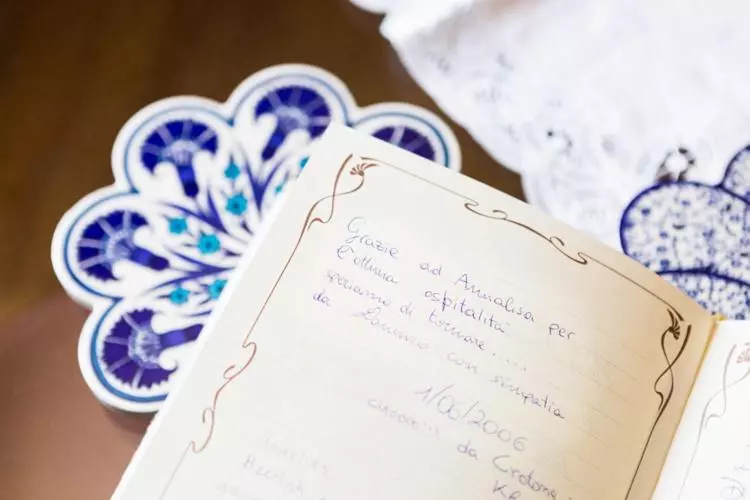 Grazie ad Annalisa per
l'ottima ospitalità
speriamo di tornare.....
da con simpatia
1/06/2006
da Crotone
KR